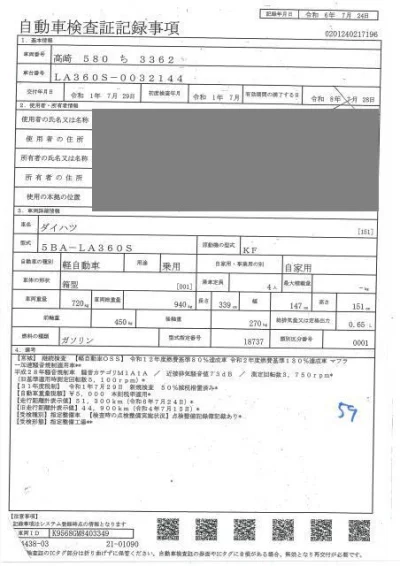 記録年月日 令和 6年 7月 24日
自動車検査証記録事項
0201240217196
1. 基本情報
車両番号 高崎 580 ち 3362
車台番号 LA360S-0032144
交付年月日 令和 1年 7月 29日 初度検査年月 令和 1年 7月 有効期間の満了する日 令和 8年 7月 28日
2. 使用者・所有者情報
使用者の氏名又は名称
使用者の住所
所有者の氏名又は名称
所有者の住所
使用の本拠の位置
3. 車両詳細情報
車名 ダイハツ [151]
型式 5BA-LA360S 原動機の型式 KF
自動車の種別 軽自動車 用途 乗用 自家用・事業用の別 自家用
車体の形状 箱型 [001] 乗車定員 4人 最大積載量 -kg
車両重量 720kg 車両総重量 940kg 長さ 339cm 幅 147cm 高さ 151cm
前軸重 450kg 後軸重 270kg 総排気量又は定格出力 0.65L
燃料の種類 ガソリン 型式指定番号 18737 類別区分番号 0001
4. 備考
継続検査 【軽自動車OSS】 令和12年度燃費基準80%達成車 令和2年度燃費基準130%達成車 マフラ
ー加速騒音規制適用車**
平成28年騒音規制車 騒音カテゴリM1A1A / 近接排気騒音値75dB / 測定回転数3,750rpm*
(旧基準適用時測定回転数5,100rpm)*
【31年度税制】 令和1年7月29日 新規検査 50%減税措置済み*
【自動車重量税額】 ¥5,000 本則税率適用*
【走行距離計表示値】 51,300km (令和6年7月24日)*
【旧走行距離計表示値】 44,900km (令和4年7月13日)*
【受検種別】 指定整備車 【検査時の点検整備実施状況】 点検整備記録簿記載あり*
【受検形態】 指定整備工場**
59
【注意事項】
記録事項はシステム登録時点の情報となります
車両ID K9568GM8403349
4438-03 21-01090
検査証のICタグ部分は折り曲げずに保管ください。自動車検査証の券面やICタグに破損がある場合、無効となり再交付が必要です。